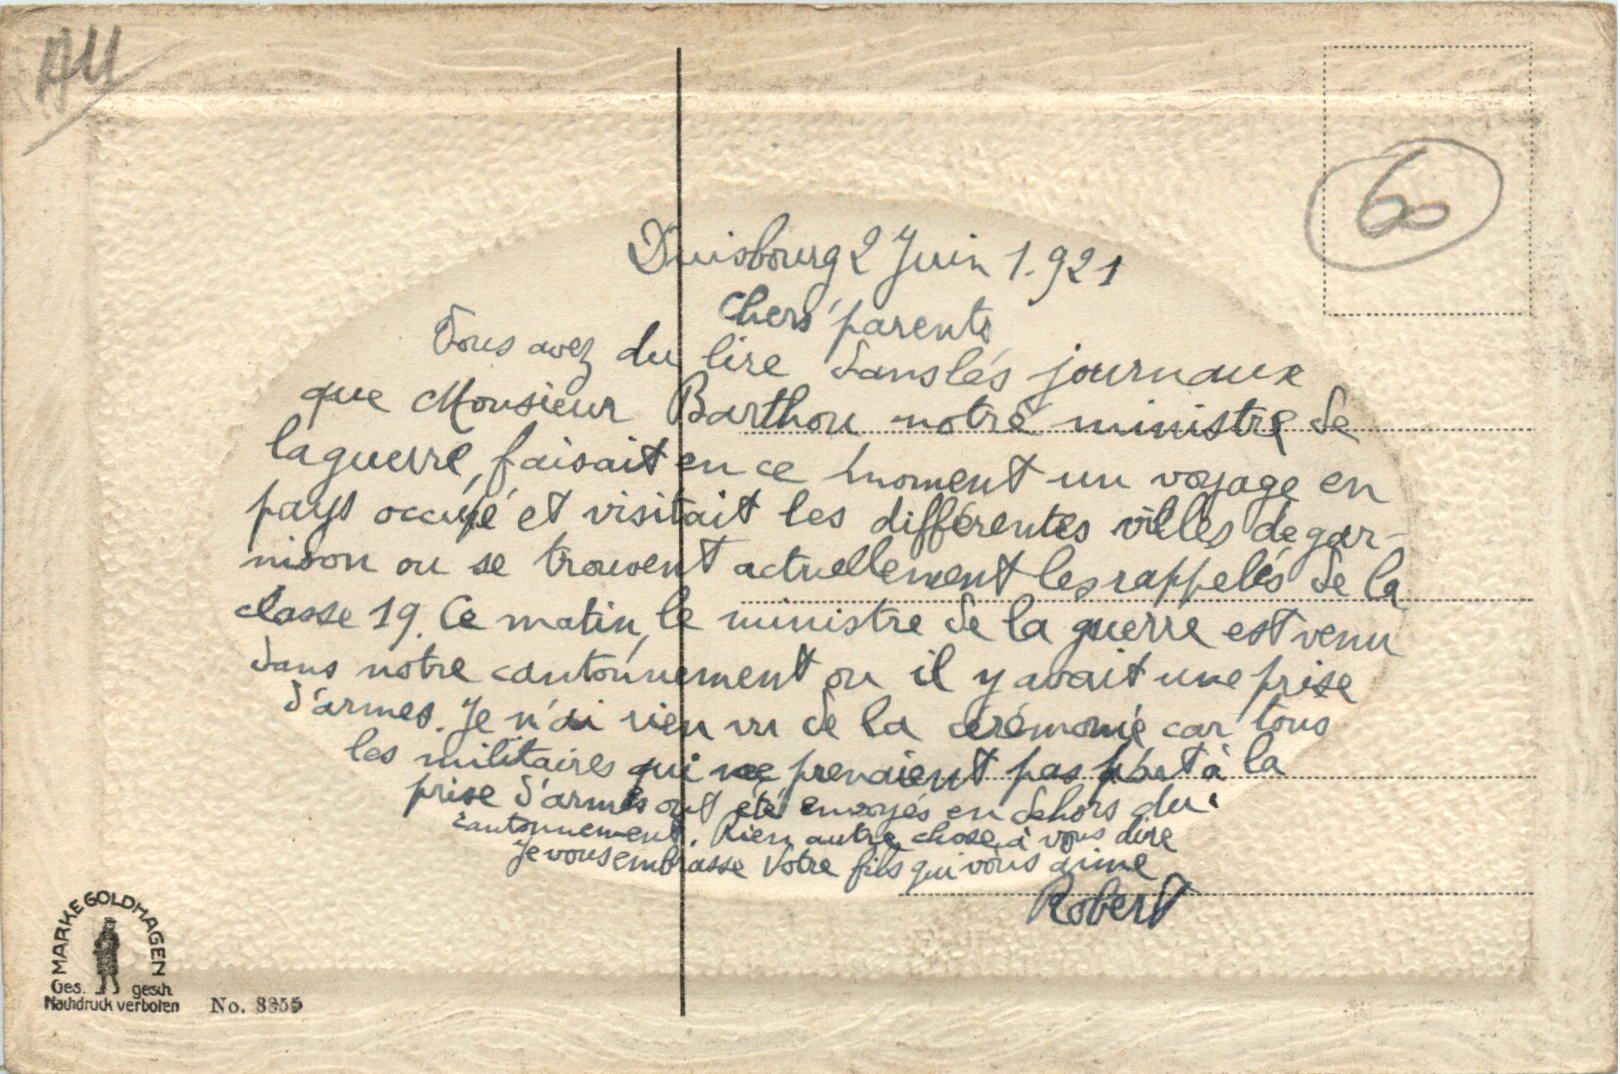 AU
60
Duisbourg 2 Juin 1.921
Chers parents
Vous avez du lire dans les journaux
que Monsieur Barthou notre ministre de
la guerre, faisait en ce moment un voyage en
pays occupé et visitait les différentes villes de gar-
nison ou se trouvent actuellement les rappelés de la
classe 19. Ce matin, le ministre de la guerre est venu
dans notre cantonnement ou il y avait une prise
d'armes. Je n'ai rien vu de la cérémonie car tous
les militaires qui ne prenaient pas part à la
prise d'armes ont été envoyés en dehors du
cantonnement. Rien autre chose à vous dire
Je vous embrasse Votre fils qui vous aime
Robert
MARKE GOLDHAGEN
Ges. gesch.
Nachdruck verboten
No. 8355